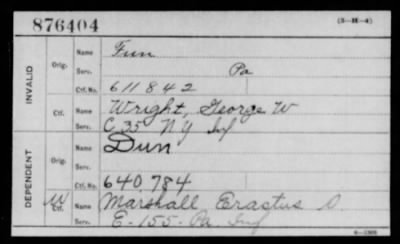 876404 (3-H-4)
INVALID
Orig.
Name Fun
Serv. Pa
Ctf. No. 611842
Ctf.
Name Wright, George W
Serv. C 35 NY Inf
DEPENDENT
Orig.
Name Dun
Serv.
Ctf. No. 640784
W Ctf.
Name Marshall Erastus O
Serv. E-155-Pa Inf